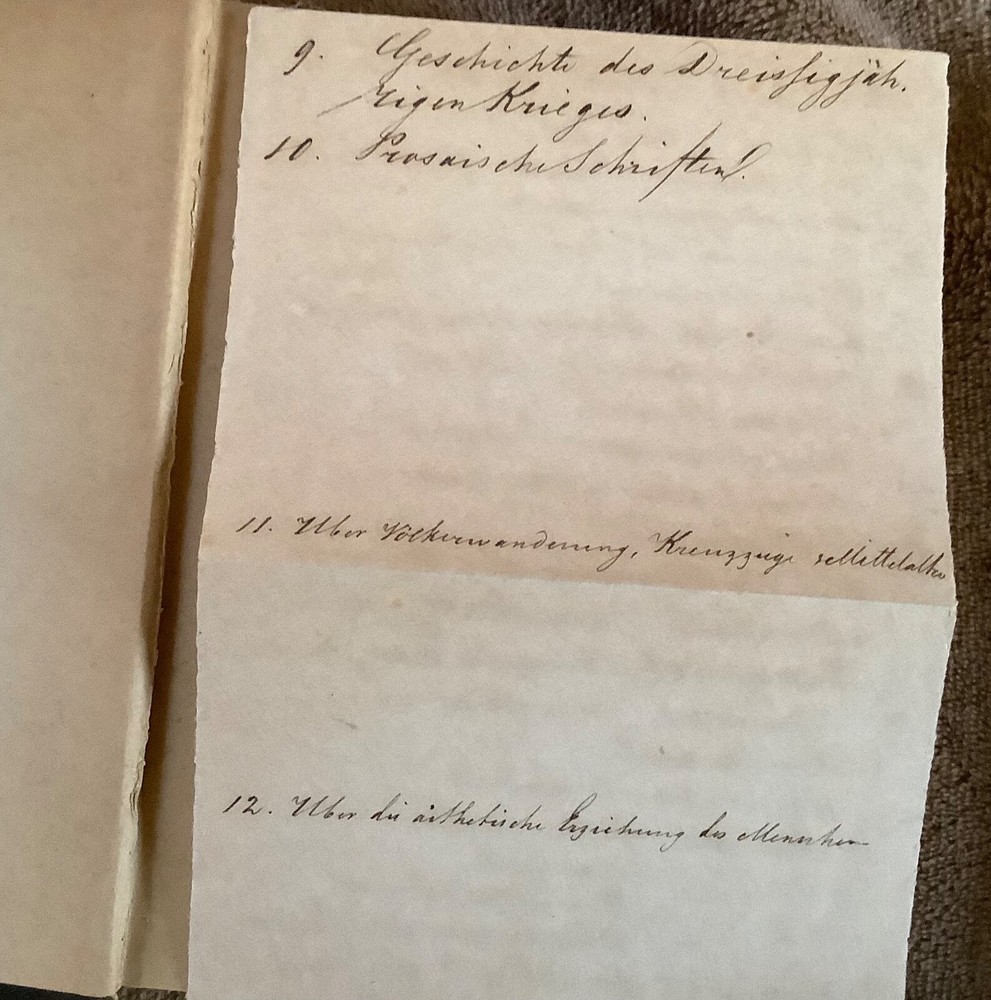 9. Geschichte des Dreissigjäh.
rigen Krieges.
10. Prosaische Schriften.
11. Über Völkerwanderung, Kreuzzüge Mittelalter
12. Über die ästhetische Erziehung des Menschen